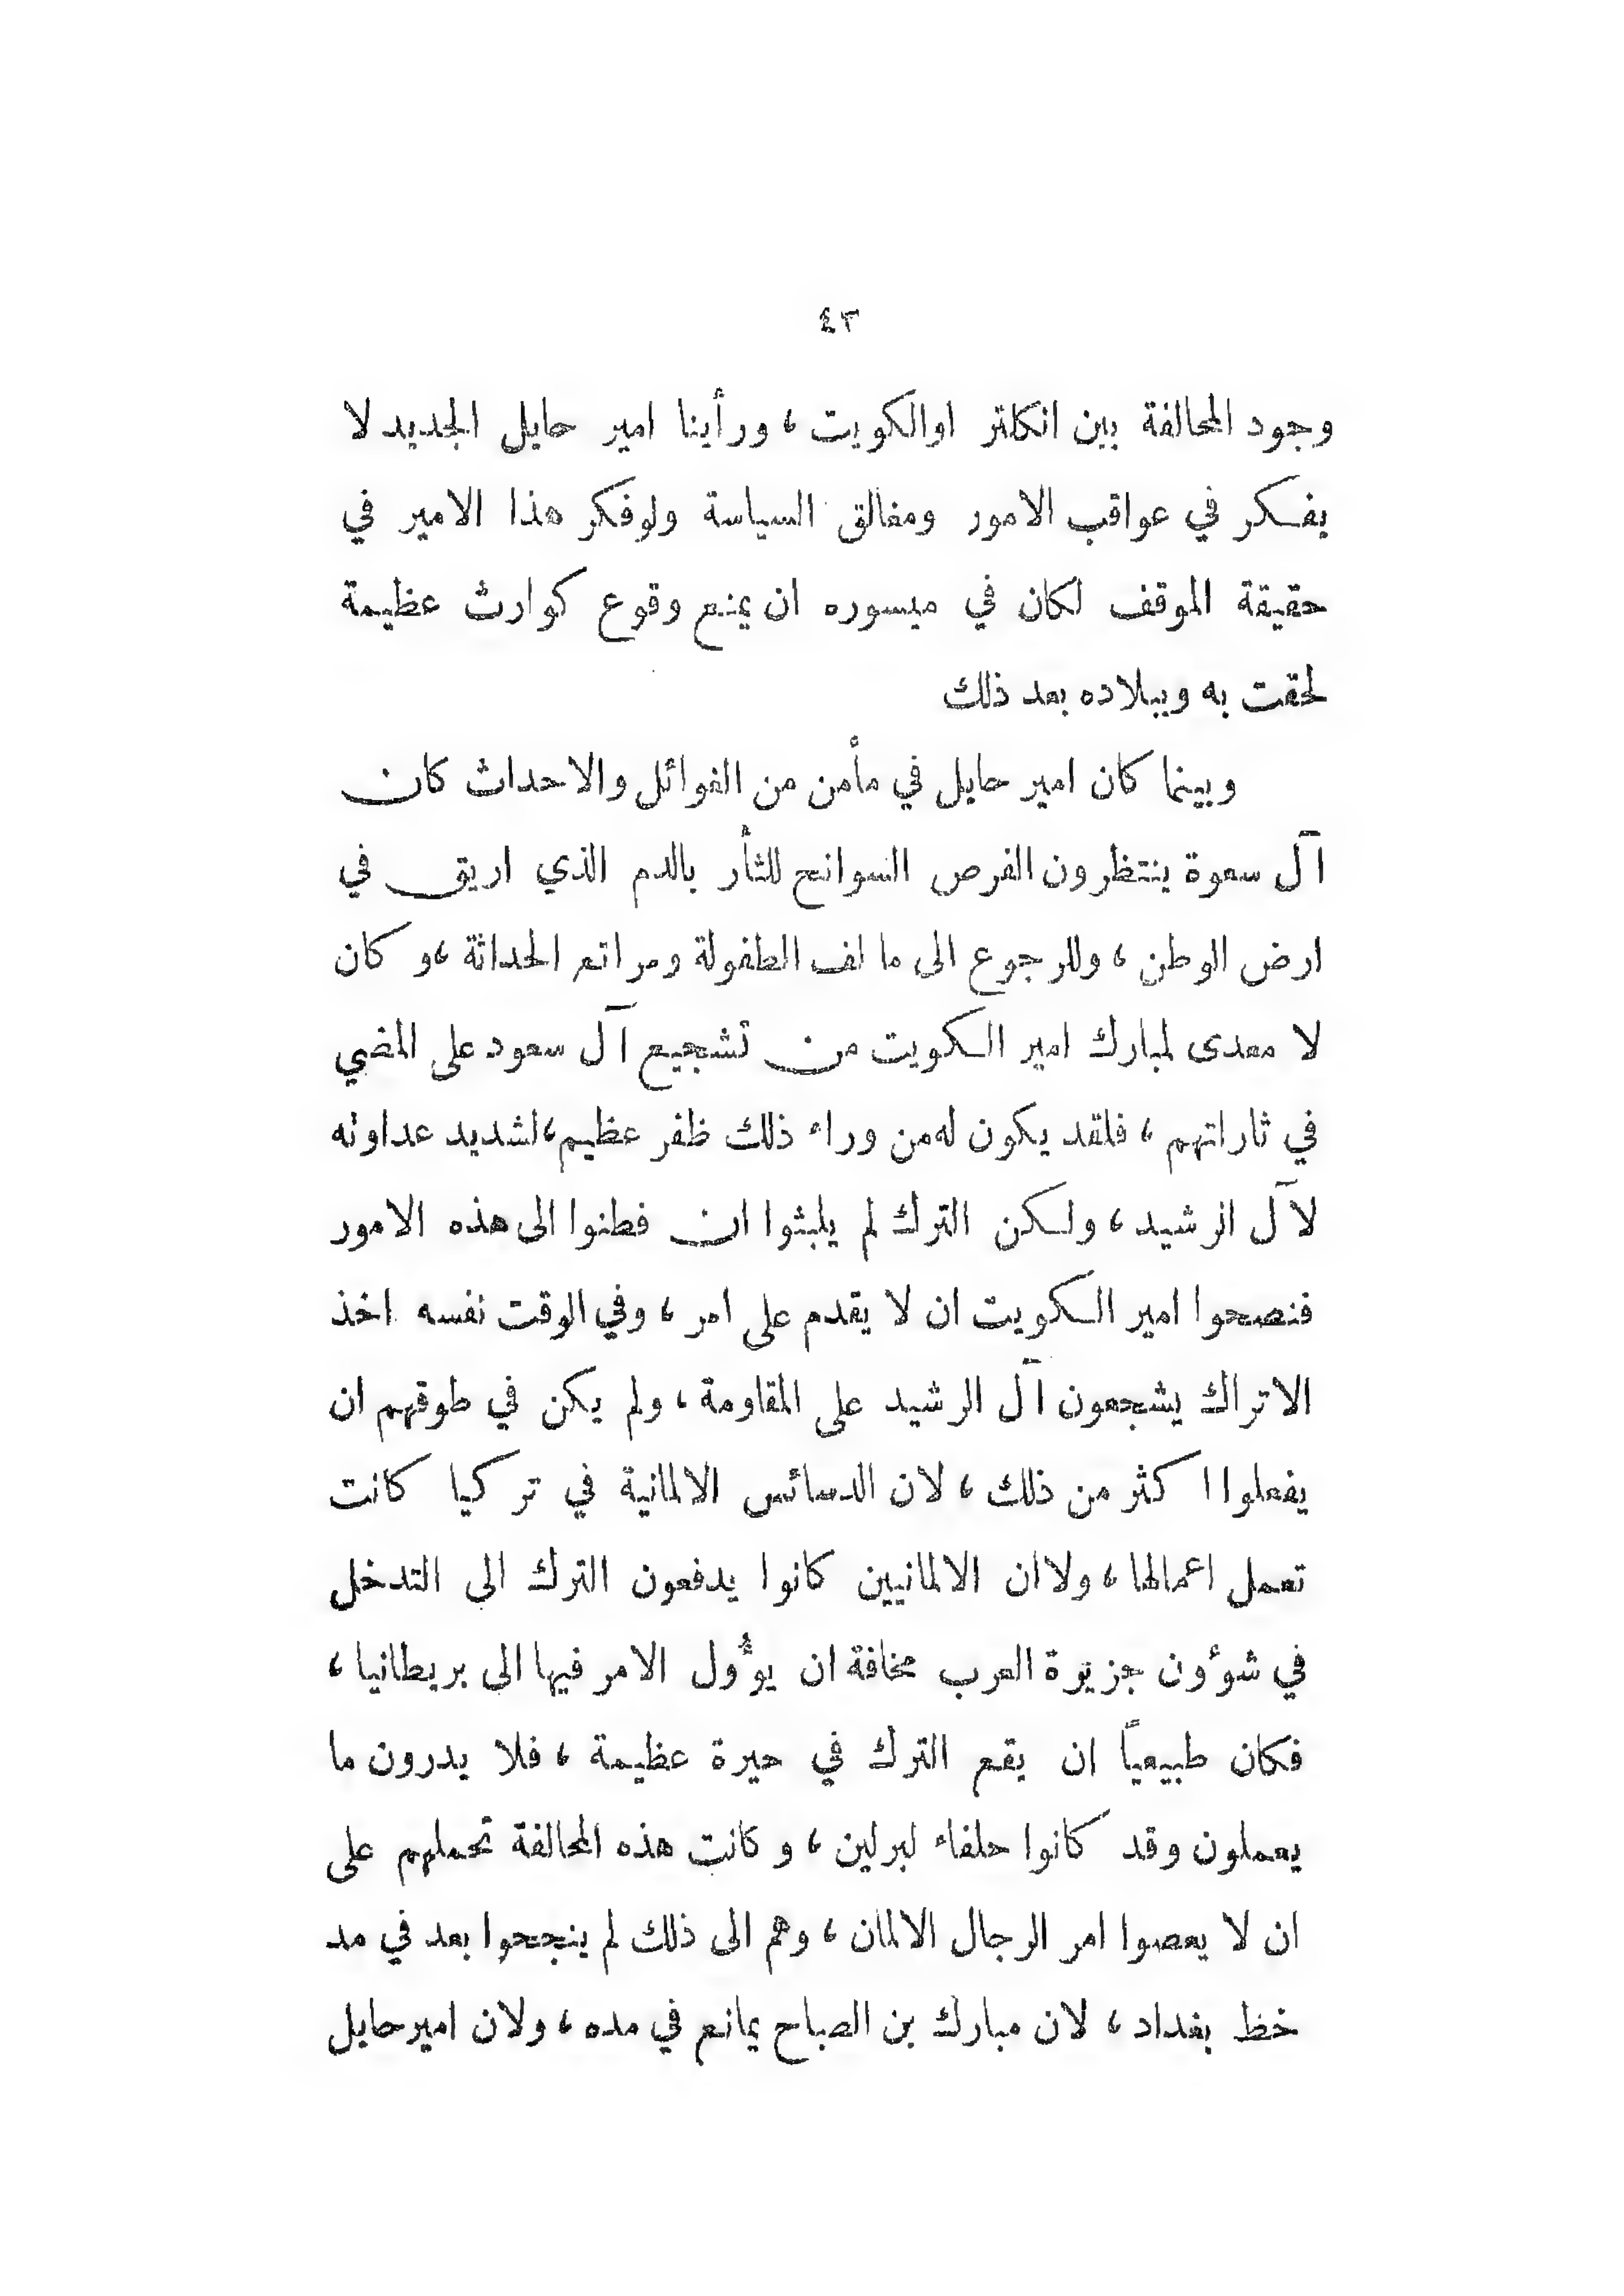 ٤٣
وجود المحالفة بين انكلتر اوالكويت ، ورأينا امير حايل الجديد لا
يفكر في عواقب الامور ومغالق السياسة ولوفكر هذا الامير في
حقيقة الموقف لكان في ميسوره ان يمنع وقوع كوارث عظيمة
لحقت به وببلاده بعد ذلك
وبينما كان امير حايل في مأمن من الغوائل والاحداث كان
آل سعوة ينتظرون الفرص السوانح للثأر بالدم الذي اريق في
ارض الوطن ، وللرجوع الى ما لف الطفولة ومراتع الحداثة ،و كان
لا معدى لمبارك امير الكويت من تشجيع آل سعود على المضي
في ثاراتهم ، فلقد يكون له من وراء ذلك ظفر عظيم ، لشديد عداوته
لآل الرشيد ، ولكن الترك لم يلبثوا ان فطنوا الى هذه الامور
فنصحوا امير الكويت ان لا يقدم على امر ، وفي الوقت نفسه اخذ
الاتراك يشجعون آل الرشيد على المقاومة ، ولم يكن في طوقهم ان
يفعلوا اكثر من ذلك ، لان الدسائس الالمانية في تركيا كانت
تعمل اعمالها ، ولاان الالمانيين كانوا يدفعون الترك الى التدخل
في شؤون جزيرة العرب مخافة ان يؤول الامر فيها الى بريطانيا ،
فكان طبيعياً ان يقع الترك في حيرة عظيمة ، فلا يدرون ما
يعملون وقد كانوا حلفاء لبرلين ، وكانت هذه المحالفة تحملهم على
ان لا يعصوا امر الرجال الالمان ، وهم الى ذلك لم ينجحوا بعد في مد
خظ بغداد ، لان مبارك بن الصباح يمانع في مده ، ولان امير حايل